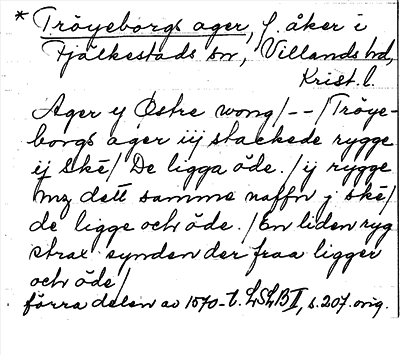 * Tröyeborgs ager, f. åker i
Fjälkestads sn, Villands hd,
Krist. l.
Ager y Østre wong/--/Tröye-
borgs ager iij stackede rygge
ij Ske/ De ligga öde. /ij rygge
mz dett samme naffn j ske/
de ligge och öde. /En liden ryg
strax synden der fraa ligger
och öde/
förra delen av 1570-t. LSLB II, s. 207. orig.